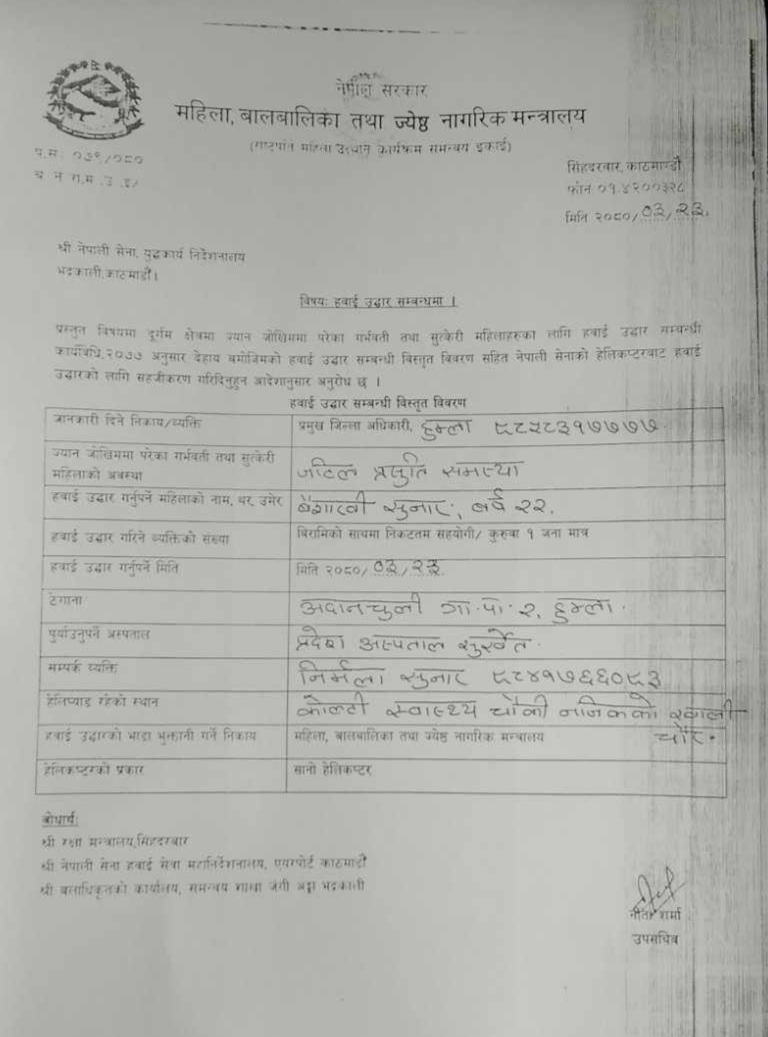 नेपाल सरकार
महिला, बालबालिका तथा ज्येष्ठ नागरिक मन्त्रालय
(राष्ट्रपति महिला उत्थान कार्यक्रम समन्वय इकाई)
प.स. ०७९/०८०
च न रा.म .उ .इ/
सिंहदरवार, काठमाण्डौ
फोन ०१.४२००३२८
मिति २०८०/०३/२३.
श्री नेपाली सेना, युद्धकार्य निर्देशनालय
भद्रकाली,काठमाडौं।
विषयः हवाई उद्धार सम्बन्धमा ।
प्रस्तुत विषयमा दुर्गम क्षेत्रमा ज्यान जोखिममा परेका गर्भवती तथा सुत्केरी महिलाहरुका लागि हवाई उद्धार सम्बन्धी
कार्यविधि,२०७७ अनुसार देहाय बमोजिमको हवाई उद्धार सम्बन्धी विस्तृत विवरण सहित नेपाली सेनाको हेलिकप्टरबाट हवाई
उद्धारको लागि सहजीकरण गरिदिनुहुन आदेशानुसार अनुरोध छ ।
हवाई उद्धार सम्बन्धी विस्तृत विवरण
जानकारी दिने निकाय/व्यक्ति प्रमुख जिल्ला अधिकारी, हुम्ला ९८५८३१७७७७
ज्यान जोखिममा परेका गर्भवती तथा सुत्केरी महिलाको अवस्था जटिल प्रसुति समस्या
हवाई उद्धार गर्नुपर्ने महिलाको नाम, थर, उमेर बैशाखी सुनार, वर्ष २२.
हवाई उद्धार गरिने व्यक्तिको संख्या बिरामिको साथमा निकटतम सहयोगी/ कुरुवा १ जना मात्र
हवाई उद्धार गर्नुपर्ने मिति मिति २०८०/०३/२३.
ठेगाना अदानचुली गा.पा. २, हुम्ला.
पुर्याउनुपर्ने अस्पताल प्रदेश अस्पताल सुर्खेत.
सम्पर्क व्यक्ति निर्मला सुनार ९८४१७६६०९३
हेलिप्याड रहेको स्थान कोल्टी स्वास्थ्य चौकी नजिकको खाली चौर.
हवाई उद्धारको भाडा भुक्तानी गर्ने निकाय महिला, बालबालिका तथा ज्येष्ठ नागरिक मन्त्रालय
हेलिकप्टरको प्रकार सानो हेलिकप्टर
बोधार्थः
श्री रक्षा मन्त्रालय,सिंहदरबार
श्री नेपाली सेना हवाई सेवा महानिर्देशनालय, एयरपोर्ट काठमाडौं
श्री बलाधिकृतको कार्यालय, समन्वय शाखा जंगी अड्डा भद्रकाली
नीता शर्मा
उपसचिव